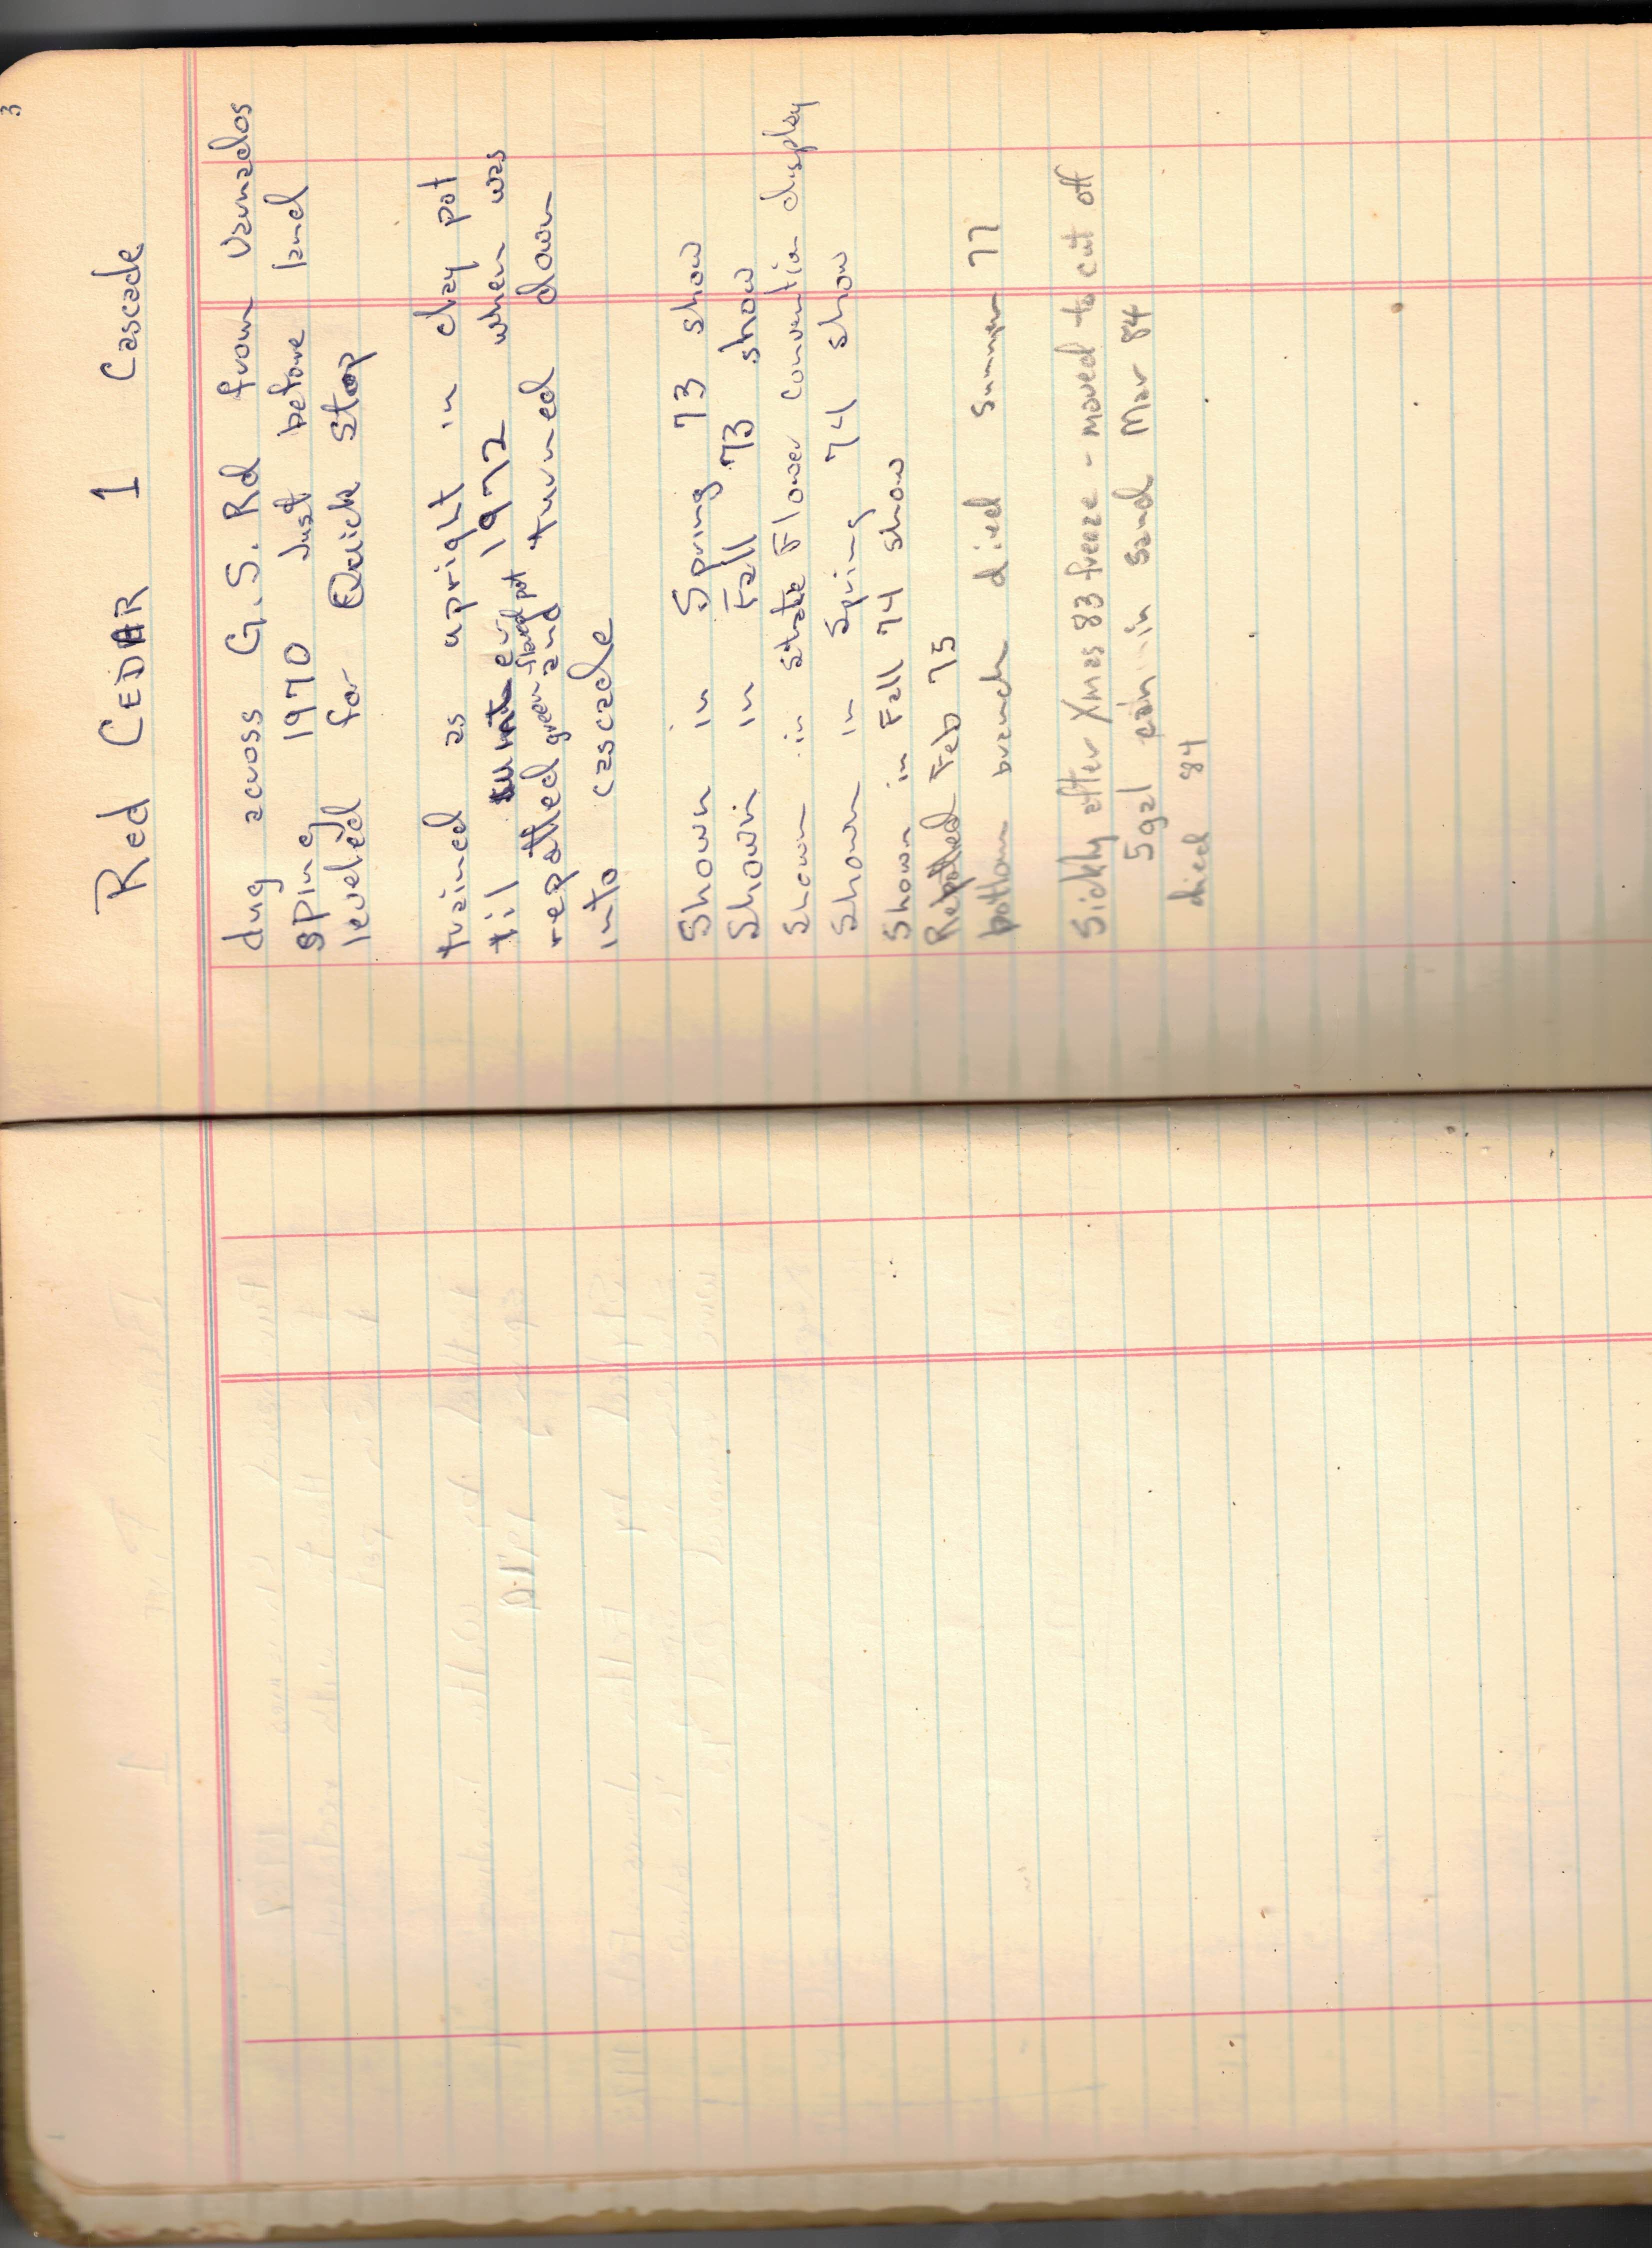 3
Red CEDAR 1 Cascade
dug across G. S. Rd from Varnados
sping 1970 Just before land
leveled for Quick Stop
trained as upright in clay pot
til 1972 when was
green flared pot
repotted and turned down
into cascade
Shown in Spring 73 show
Shown in Fall 73 show
Shown in State Flower Convention display
Shown in Spring 74 show
Shown in Fall 74 show
Repotted Feb 75
bottom branch died Summer 77
Sickly after Xmas 83 freeze - moved to cut off
5gal can in sand Mar 84
died 84